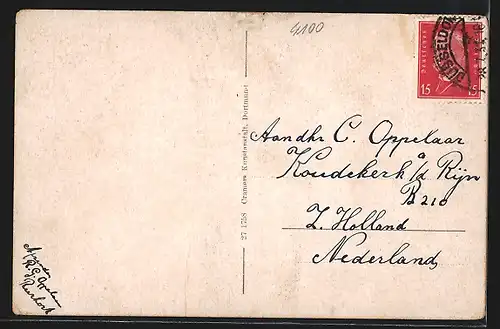 4100
DÜSSELDORF
Deutsches
15 15
27 1758 Cramers Kunstanstalt, Dortmund
Aandhr C. Oppelaar
Koudekerk a/d Rijn
B210
Z. Holland
Nederland